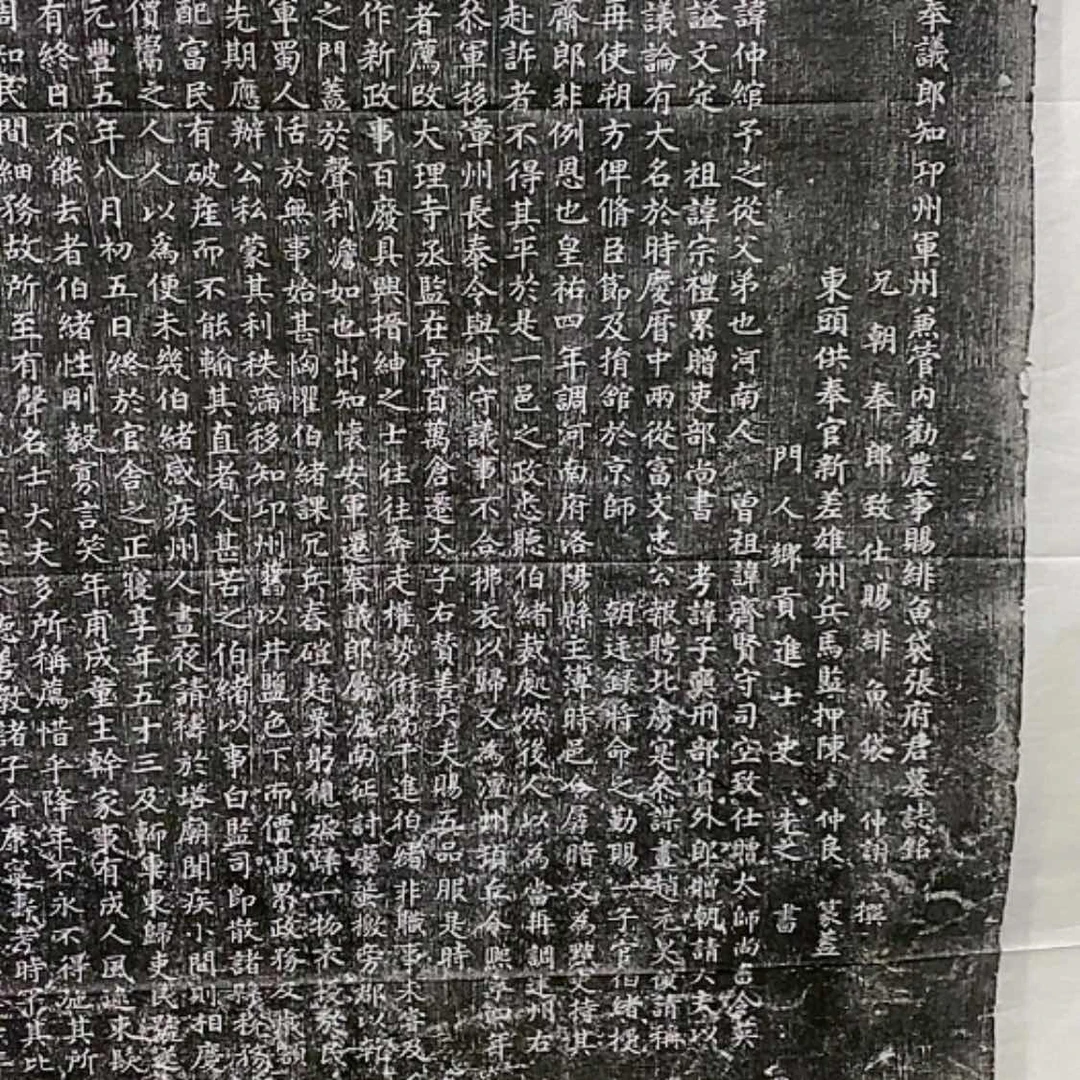 奉議郎知邛州軍州兼管内勸農事賜緋魚袋張府君墓誌銘
兄朝奉郎致仕賜緋魚袋 仲 撰
東頭供奉官新差雄州兵馬監押陳 仲良 篆蓋
門人鄉貢進士史 書
諱仲綰予之從父弟也河南人 曾祖諱齊賢守司空致仕贈太師尚書令英
謚文定 祖諱宗禮累贈吏部尚書 考諱子奭刑部員外郎贈朝請大夫以
議論有大名於時慶曆中兩從富文忠公報聘北虜寔參謀畫趙元昊復請稱
再使朔方俾脩臣節及捐舘於京師 朝廷録將命之勤賜一子官伯緒授
齋郎非例恩也皇祐四年調河南府洛陽縣主簿時邑令孱暗又為點文持其
赴訴者不得其平於是一邑之政悉聽伯緒裁處然後人以為當再調 州右
叅軍移漳州長泰令與太守議事不合拂衣以歸又為澶州頓丘令熙寧四年
者薦改大理寺丞監在京百萬倉遷太子右贊善大夫賜五品服是時
作新政事百廢具興搢紳之士往往奔走權勢衒鬻干進伯緒非職事未嘗及
之門蓋於聲利澹如也出知懷安軍還奉議郎屬瀘南征討 搬旁郡以
軍蜀人恬於無事始甚恟懼伯緒課冗兵舂碓趂粟躬視 一物不 於民
先期應辦公私蒙其利秩滿移知邛州舊以井鹽色下而價髙累政務及 額
配富民有破産而不能輸其直者人甚苦之伯緒以事白監司即散諸縣 務
價鬻之人人以為便未幾伯緒感疾州人晝夜請禱於塔廟聞疾小間則相慶
元豐五年八月初五日終於官舍之正寢享年五十三及輀車東歸吏民 送
有終日不能去者伯緒性剛毅寡言笑年甫成童主幹家事有成人風逺東歘
周知民間細務故所至有聲名士大夫多所稱薦惜乎降年不永不得施其所